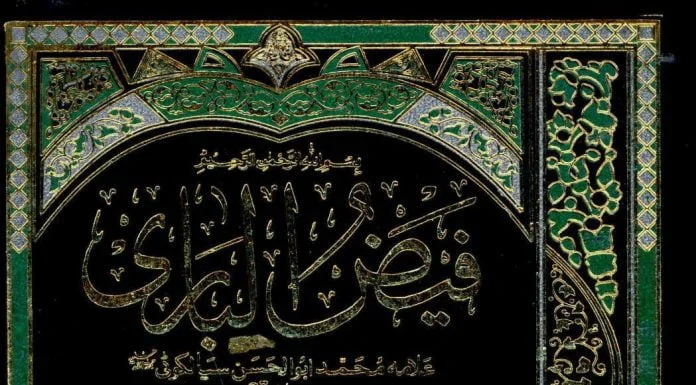 بسم الله الرحمن الرحيم
فيض الباری
علامہ محمد ابوالحسن سیالکوٹی